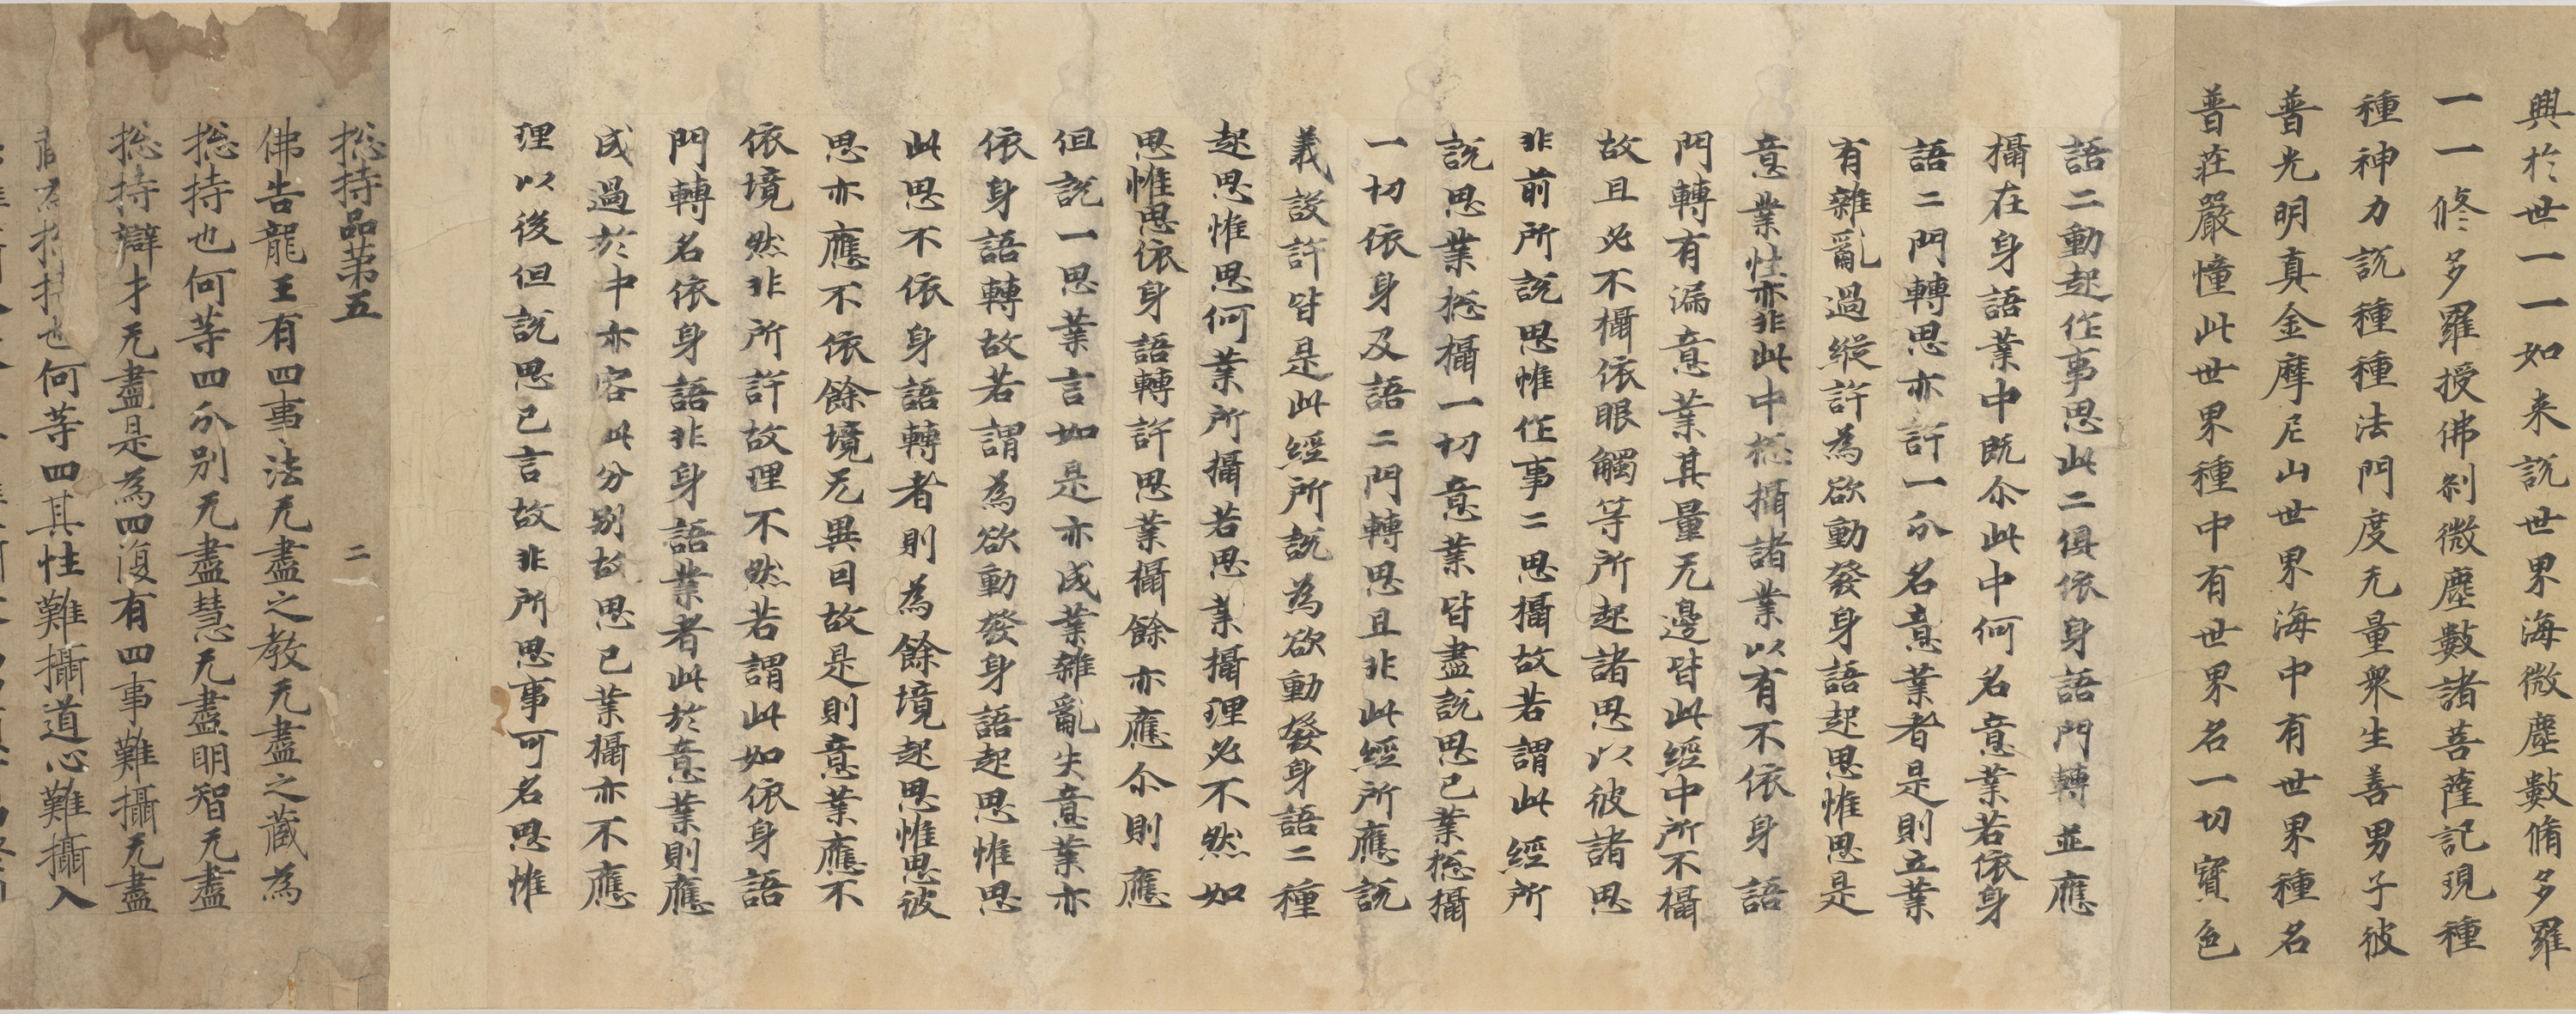 興於世一一如来說世界海微塵數脩多羅
一一修多羅授佛刹微塵數諸菩薩記現種
種神力說種種法門度无量衆生善男子彼
普光明真金摩尼山世界海中有世界種名
普莊嚴幢此世界種中有世界名一切寶色
語二動起作事思此二俱依身語門轉並應
攝在身語業中既尒此中何名意業若依身
語二門轉思亦許一分名意業者是則立業
有雜亂過縱許為欲動發身語起思惟思是
意業性亦非此中揔攝諸業以有不依身語
門轉有漏意業其量无邊皆此經中所不攝
故且必不攝依眼觸等所起諸思以彼諸思
非前所說思惟作事二思攝故若謂此經所
說思業揔攝一切意業皆盡說思已業揔攝
一切依身及語二門轉思且非此經所應說
義設許皆是此經所說為欲動發身語二種
起思惟思何業所攝若思業攝理必不然如
思惟思依身語轉許思業攝餘亦應尒則應
但說一思業言如是亦成業雜亂失意業亦
依身語轉故若謂為欲動發身語起思惟思
此思不依身語轉者則為餘境起思惟思彼
思亦應不依餘境无異因故是則意業應不
依境然非所許故理不然若謂此如依身語
門轉名依身語非身語業者此於意業則應
成過於中亦容此分別故思已業攝亦不應
理以後但說思已言故非所思事可名思惟
揔持品第五　二
佛告龍王有四事法无盡之教无盡之藏為
揔持也何等四分別无盡慧无盡明智无盡
揔持辯才无盡是為四復有四事難攝无盡
也何等四其性難攝道心難攝入